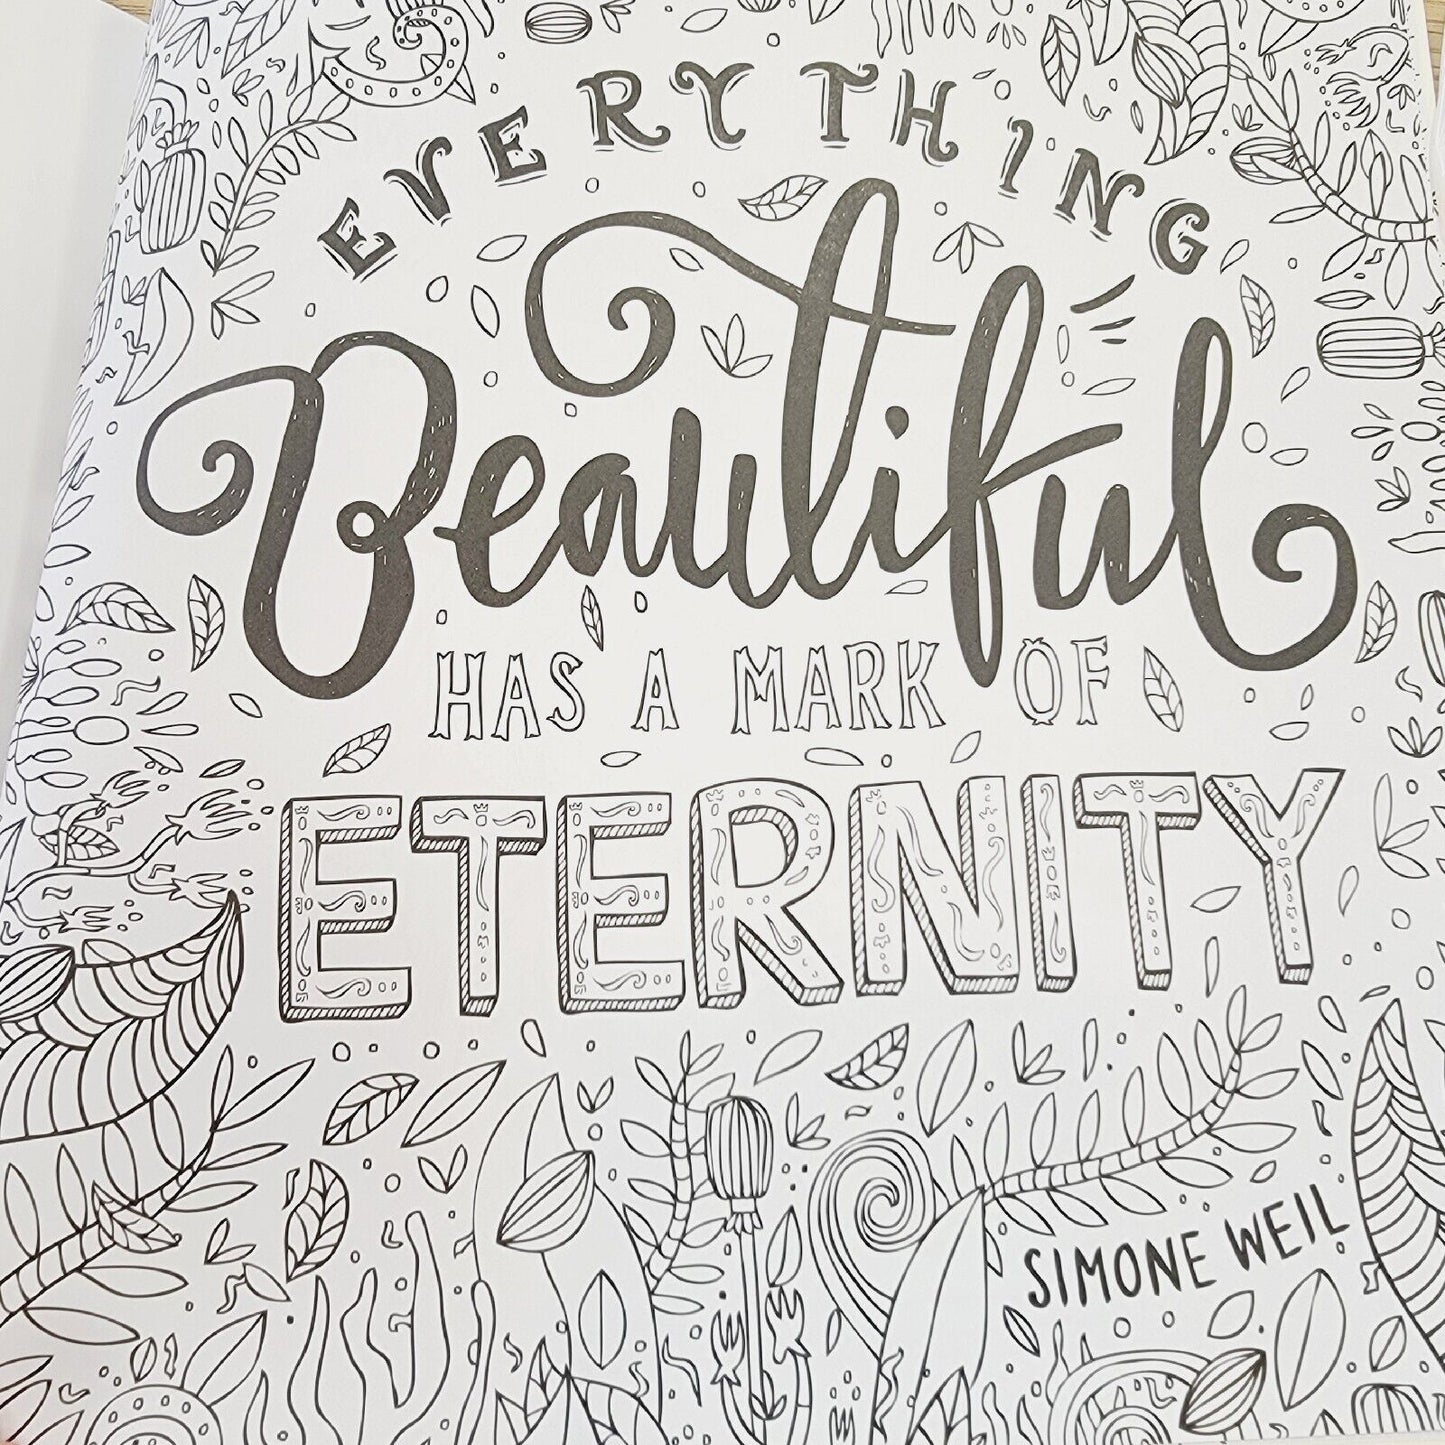 EVERYTHING
Beautiful
HAS A MARK OF
ETERNITY
SIMONE WEIL